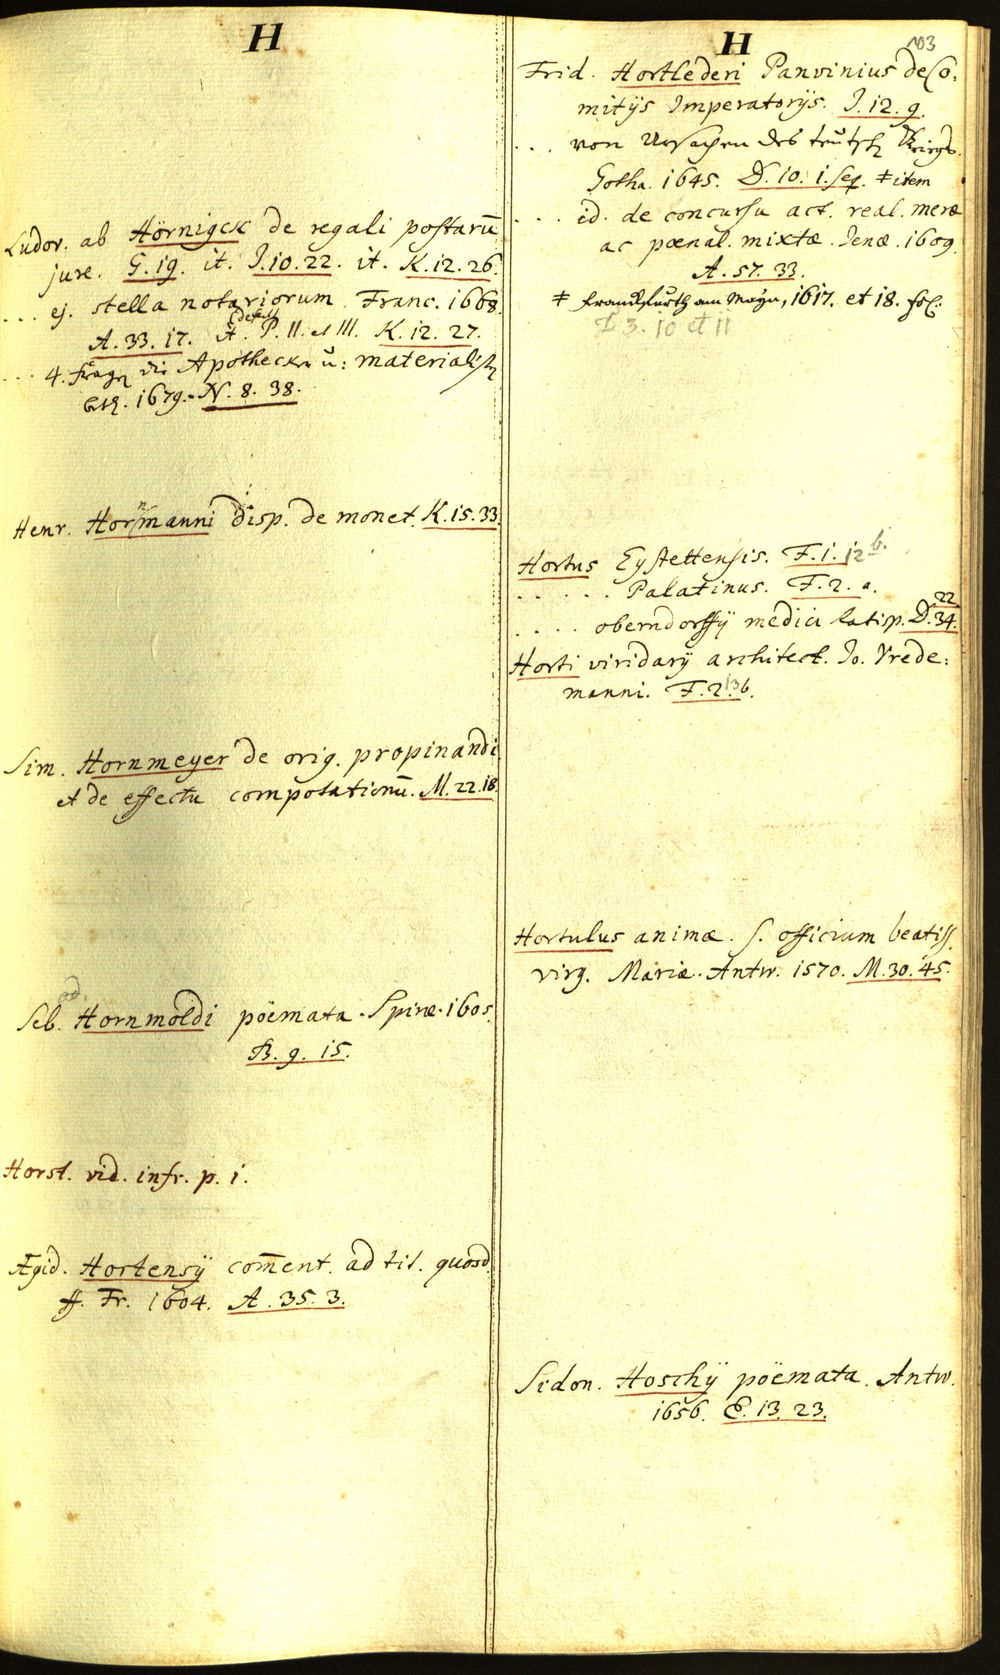 H
Ludov. ab Hörnigck de regali postarū
jure. G. 19. it. J. 10. 22. it. K. 12. 26.
... ej. stella notariorum Franc. 1668.
A. 33. 17. It. P. II. et III. K. 12. 27.
... 4. fragn die Apothecker u: materialist
1679. N. 8. 38.
Henr. Hornmanni disp. de monet. K. 15. 33.
Sim. Hornmeyer de orig. propinandi
et de effectu compotationū. M. 22. 18.
Seb. Hornmoldi pöemata. Spiræ. 1605.
B. 9. 15.
Horst. vid. infr. p. 1.
Ægid. Hortensÿ com̄ent. ad tit. quosd.
ff. Fr. 1604. A. 35. 3.
H
103
Frid. Hortlederi Panvinius de Co:
mitÿs Imperatorÿs. J. 12. 9.
... von Ursachen des teutsch Kriegs.
Gotha. 1645. D. 10. 1. seq. ‡ item
... id. de concursu act. real. meræ
ac pœnal. mixtæ. Jenæ. 1609.
A. 57. 33.
‡ franckfurth am Mayn, 1617. et 18. fol.
D 3. 10 et 11
Hortus Eystettensis. F. 1. 12 b.
..... Palatinus. F. 2. a.
.... oberndorffÿ medici Ratisp. D. 34. 22
Horti viridarÿ architect. Jo. Vrede:
manni. F. 2. 13 b.
Hortulus animæ. s. officium beatiss.
virg. Mariæ. Antw. 1570. M. 30. 45.
Sidon. Hoschÿ pöemata. Antw.
1656. E. 13. 23.